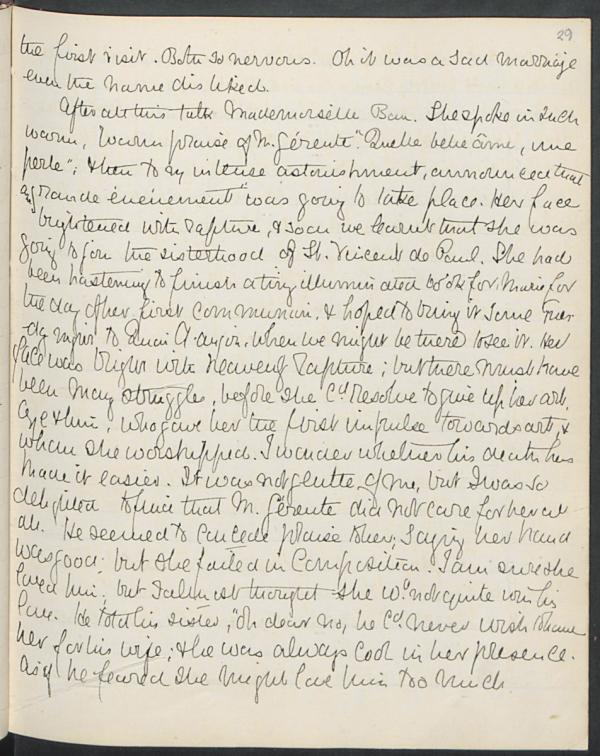 29
the first visit. Both so nervous. Oh it was a sad marriage
even the name disliked.
After all this talk Mademoiselle Bau. She spoke in such
warm, warm praise of M. Gérente. "Quelle belle âme, une
perle"; & then to my intense astonishment, announced that
a "grande événement" was going to take place. Her face
brightened with rapture, & soon we learnt that she was
going to join the sisterhood of St. Vincent de Paul. She had
been hastening to finish a tiny illuminated book for Marie for
the day of her first communion, & hoped to bring it some
day to Quai d'Anjou, when we might be there to see it. Her
face was bright with heavenly rapture; but there must have
been many struggles, before she cd resolve to give up her art,
aye & him, who gave her the first impulse towards art, &
whom she worshipped. I wonder whether his death has
made it easier. It was not gentle of me, but I was so
delighted to find that M. Gérente did not care for her at
all. He seemed to concede praise to her, saying her hand
was good; but she failed in Composition. I am sure she
loved him, but I almost thought she wd not quite win his
love. He told his sister, "oh dear no, he cd never wish to have
her for his wife; & he was always cool in her presence.
as if he feared she might love him too much